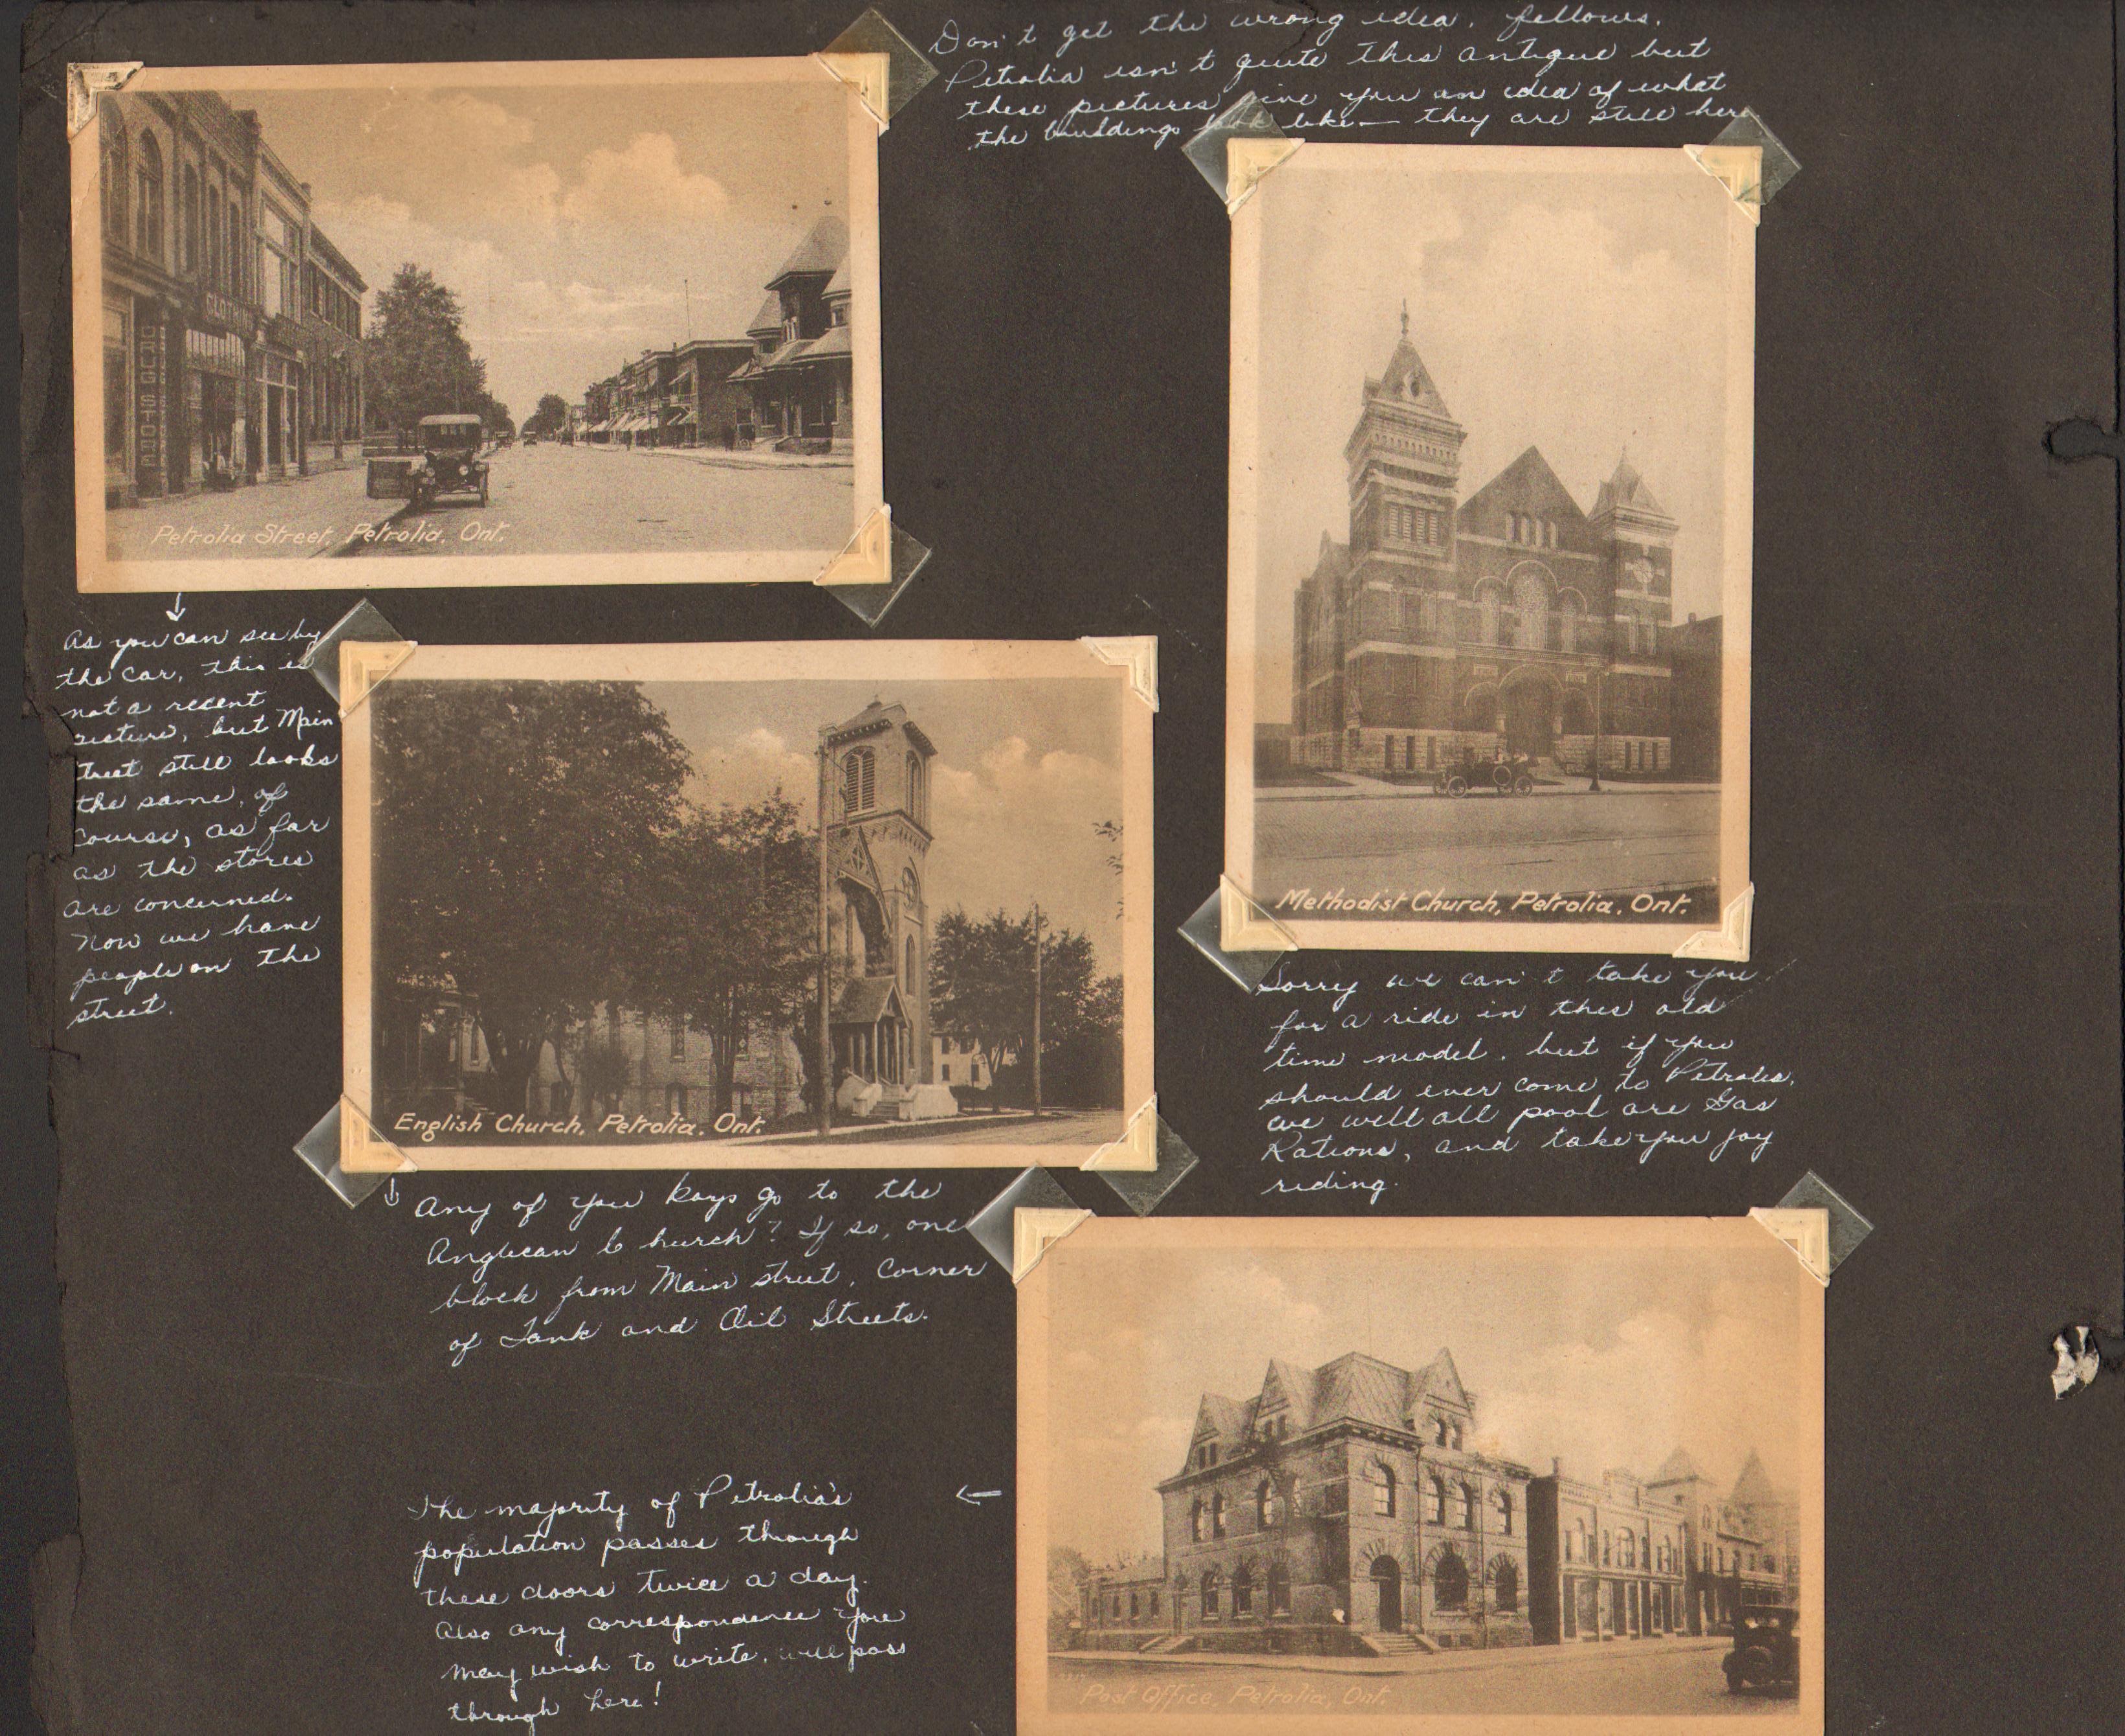 Don't get the wrong idea, fellows.
Petrolia isn't quite this antique but
these pictures give you an idea of what
the buildings look like — they are still here
CLOTHING
DRUG STORE
Petrolia Street, Petrolia, Ont.
As you can see by
the car, this is
not a recent
picture, but Main
Street still looks
the same, of
course, as far
as the stores
are concerned.
Now we have
people on the
street.
Methodist Church, Petrolia, Ont.
Sorry we can't take you
for a ride in this old
time model, but if you
should ever come to Petrolia,
we will all pool are Gas
Rations, and take you joy
riding.
English Church, Petrolia, Ont.
Any of you boys go to the
Anglican Church? If so, one
block from Main street, Corner
of Tank and Oil Streets.
The majority of Petrolia's
population passes through
these doors twice a day.
Also any correspondence you
may wish to write, will pass
through here!
Post Office, Petrolia, Ont.